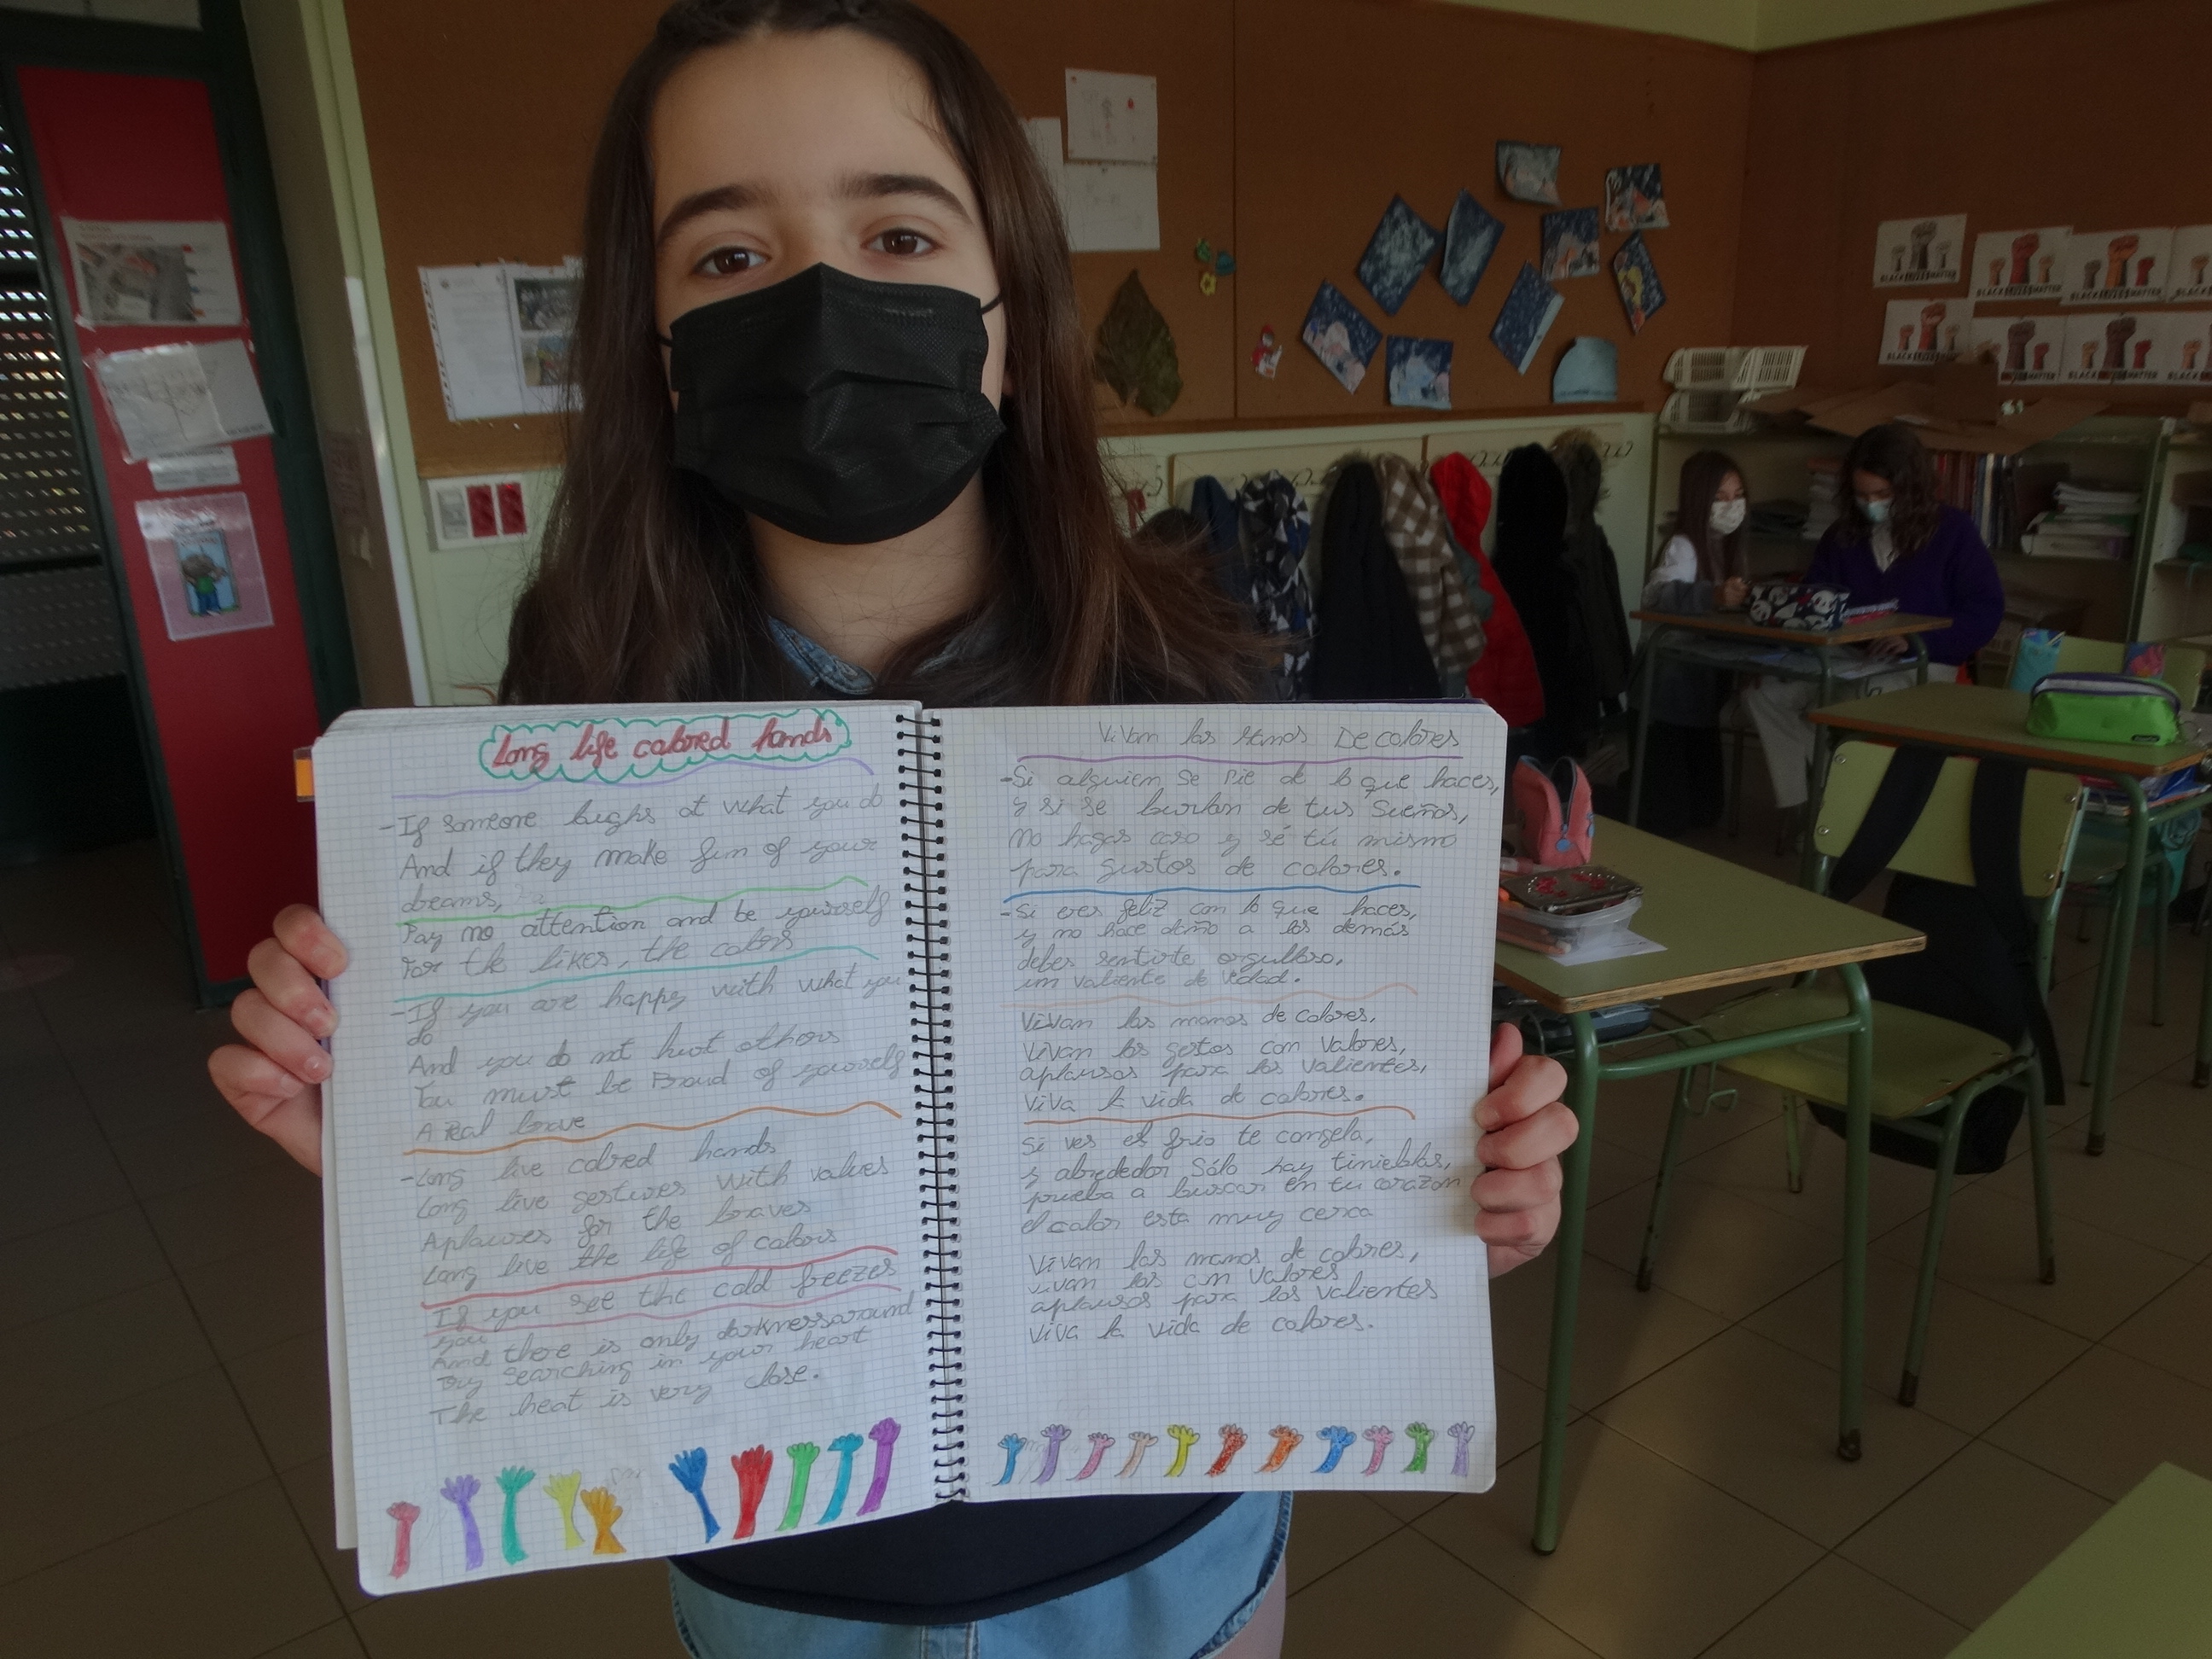 Long life colored hands
-If someone laghs at what you do
And if they make fun of your
dreams,
Pay no attention and be yourself
For the likes, the colors
-If you are happy with what you
do
And you do not hurt others
You must be Proud of yourself
A Real brave
-Long live colored hands
Long live gestures with values
Aplauses for the braves
Long live the life of colors
If you see the cold freezes
you
And there is only darkness around
Try searching in your heart
The heat is very close.
Vivan las manos De colores
-Si alguien se rie de lo que haces,
y si se burlan de tus sueños,
no hagas caso y sé tú mismo
para gustos de colores.
-Si eres feliz con lo que haces,
y no hace daño a los demás
debes sentirte orgulloso,
un valiente de verdad.
Vivan las manos de colores,
Vivan los gestos con valores,
aplausos para los valientes,
Viva la vida de colores.
Si ves el frio te congela,
y alrededor Sólo hay tinieblas,
prueba a buscar en tu corazón
el calor esta muy cerca
Vivan las manos de colores,
vivan los con valores
aplausos para los valientes
viva la vida de colores.
BLACK LIVES MATTER
BLACK LIVES MATTER
BLACK LIVES MATTER
BLACK LIVES MATTER
BLACK LIVES MATTER
BLACK LIVES MATTER